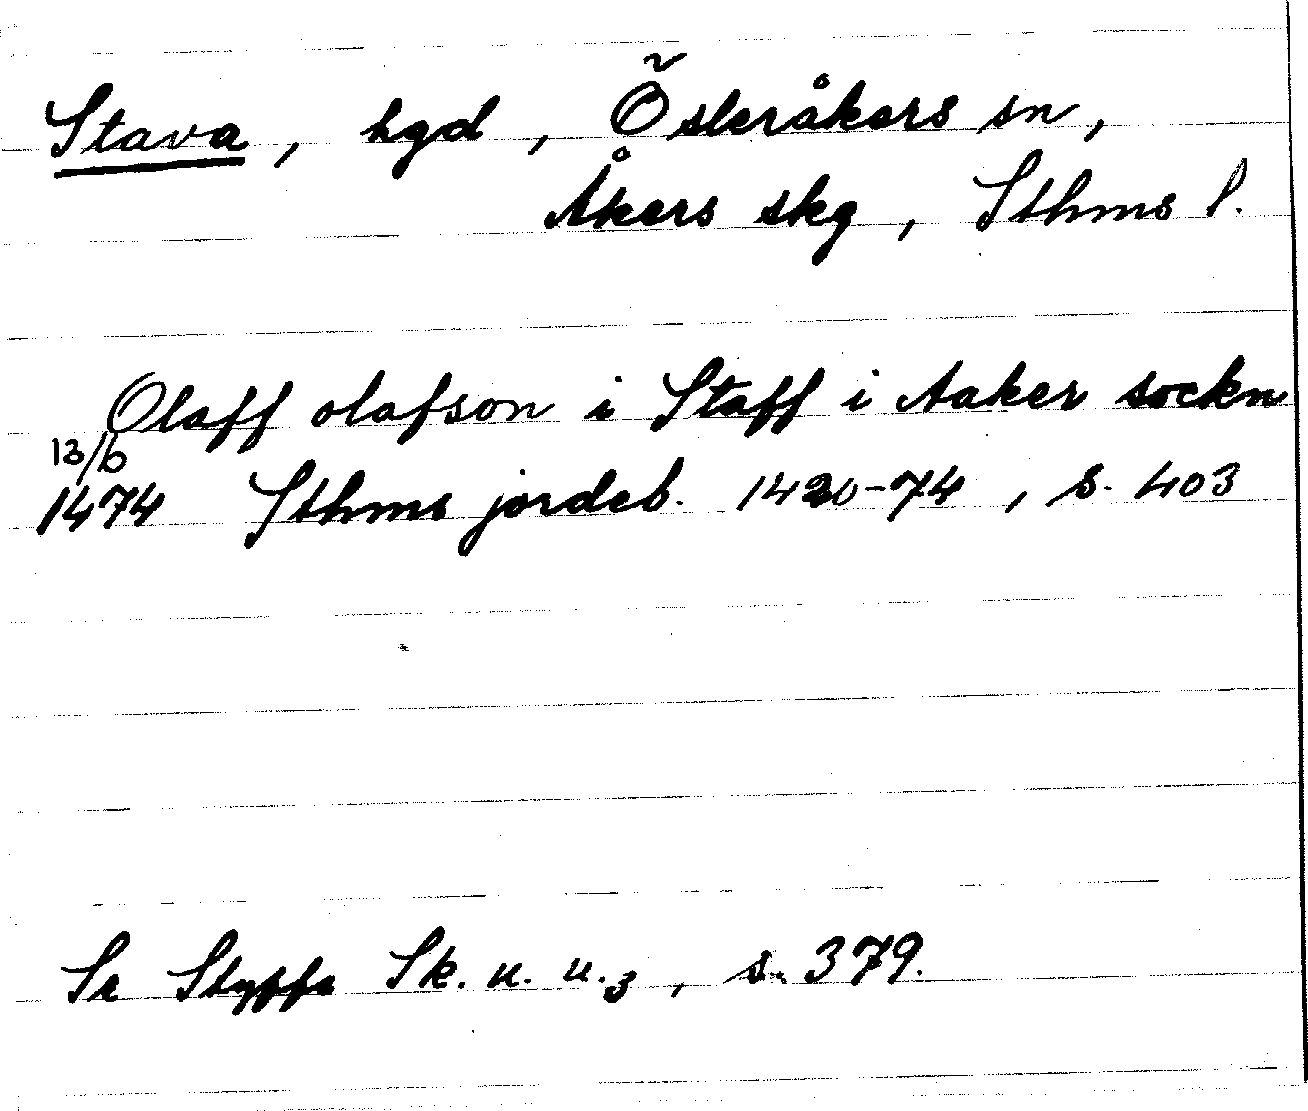 Stava, hgd, Österåkers sn,
Åkers skg, Sthms l.
Olaff olafson i Staff i Aaker sockn
13/6
1474 Sthms jordeb. 1420-74, s. 403
Se Styffe Sk. u. u.3, s. 379.